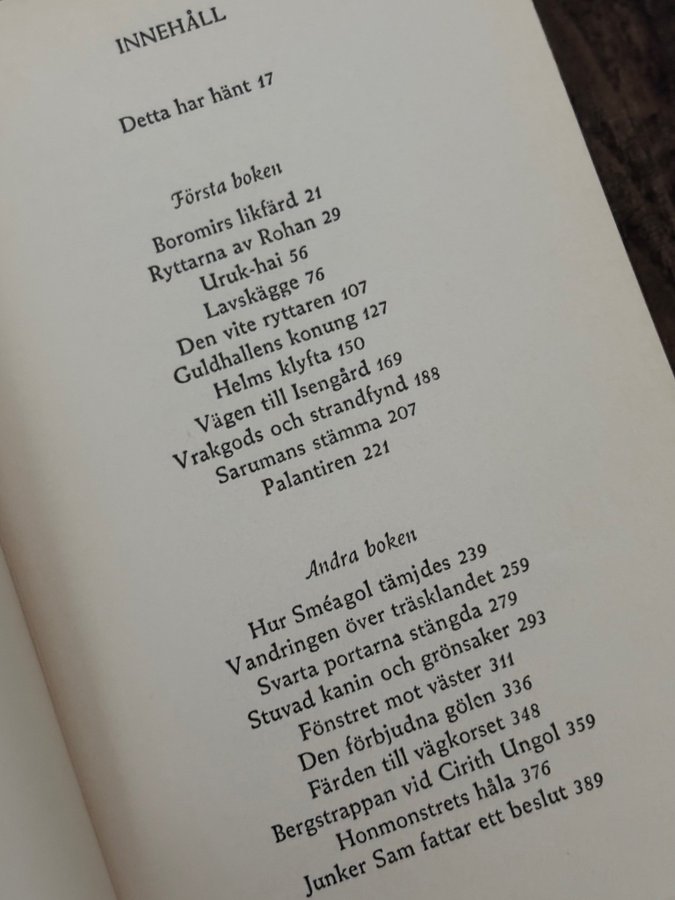 INNEHÅLL
Detta har hänt 17
Första boken
Boromirs likfärd 21
Ryttarna av Rohan 29
Uruk-hai 56
Lavskägge 76
Den vite ryttaren 107
Guldhallens konung 127
Helms klyfta 150
Vägen till Isengård 169
Vrakgods och strandfynd 188
Sarumans stämma 207
Palantiren 221
Andra boken
Hur Sméagol tämjdes 239
Vandringen över träsklandet 259
Svarta portarna stängda 279
Stuvad kanin och grönsaker 293
Fönstret mot väster 311
Den förbjudna gölen 336
Färden till vägkorset 348
Bergstrappan vid Cirith Ungol 359
Honmonstrets håla 376
Junker Sam fattar ett beslut 389